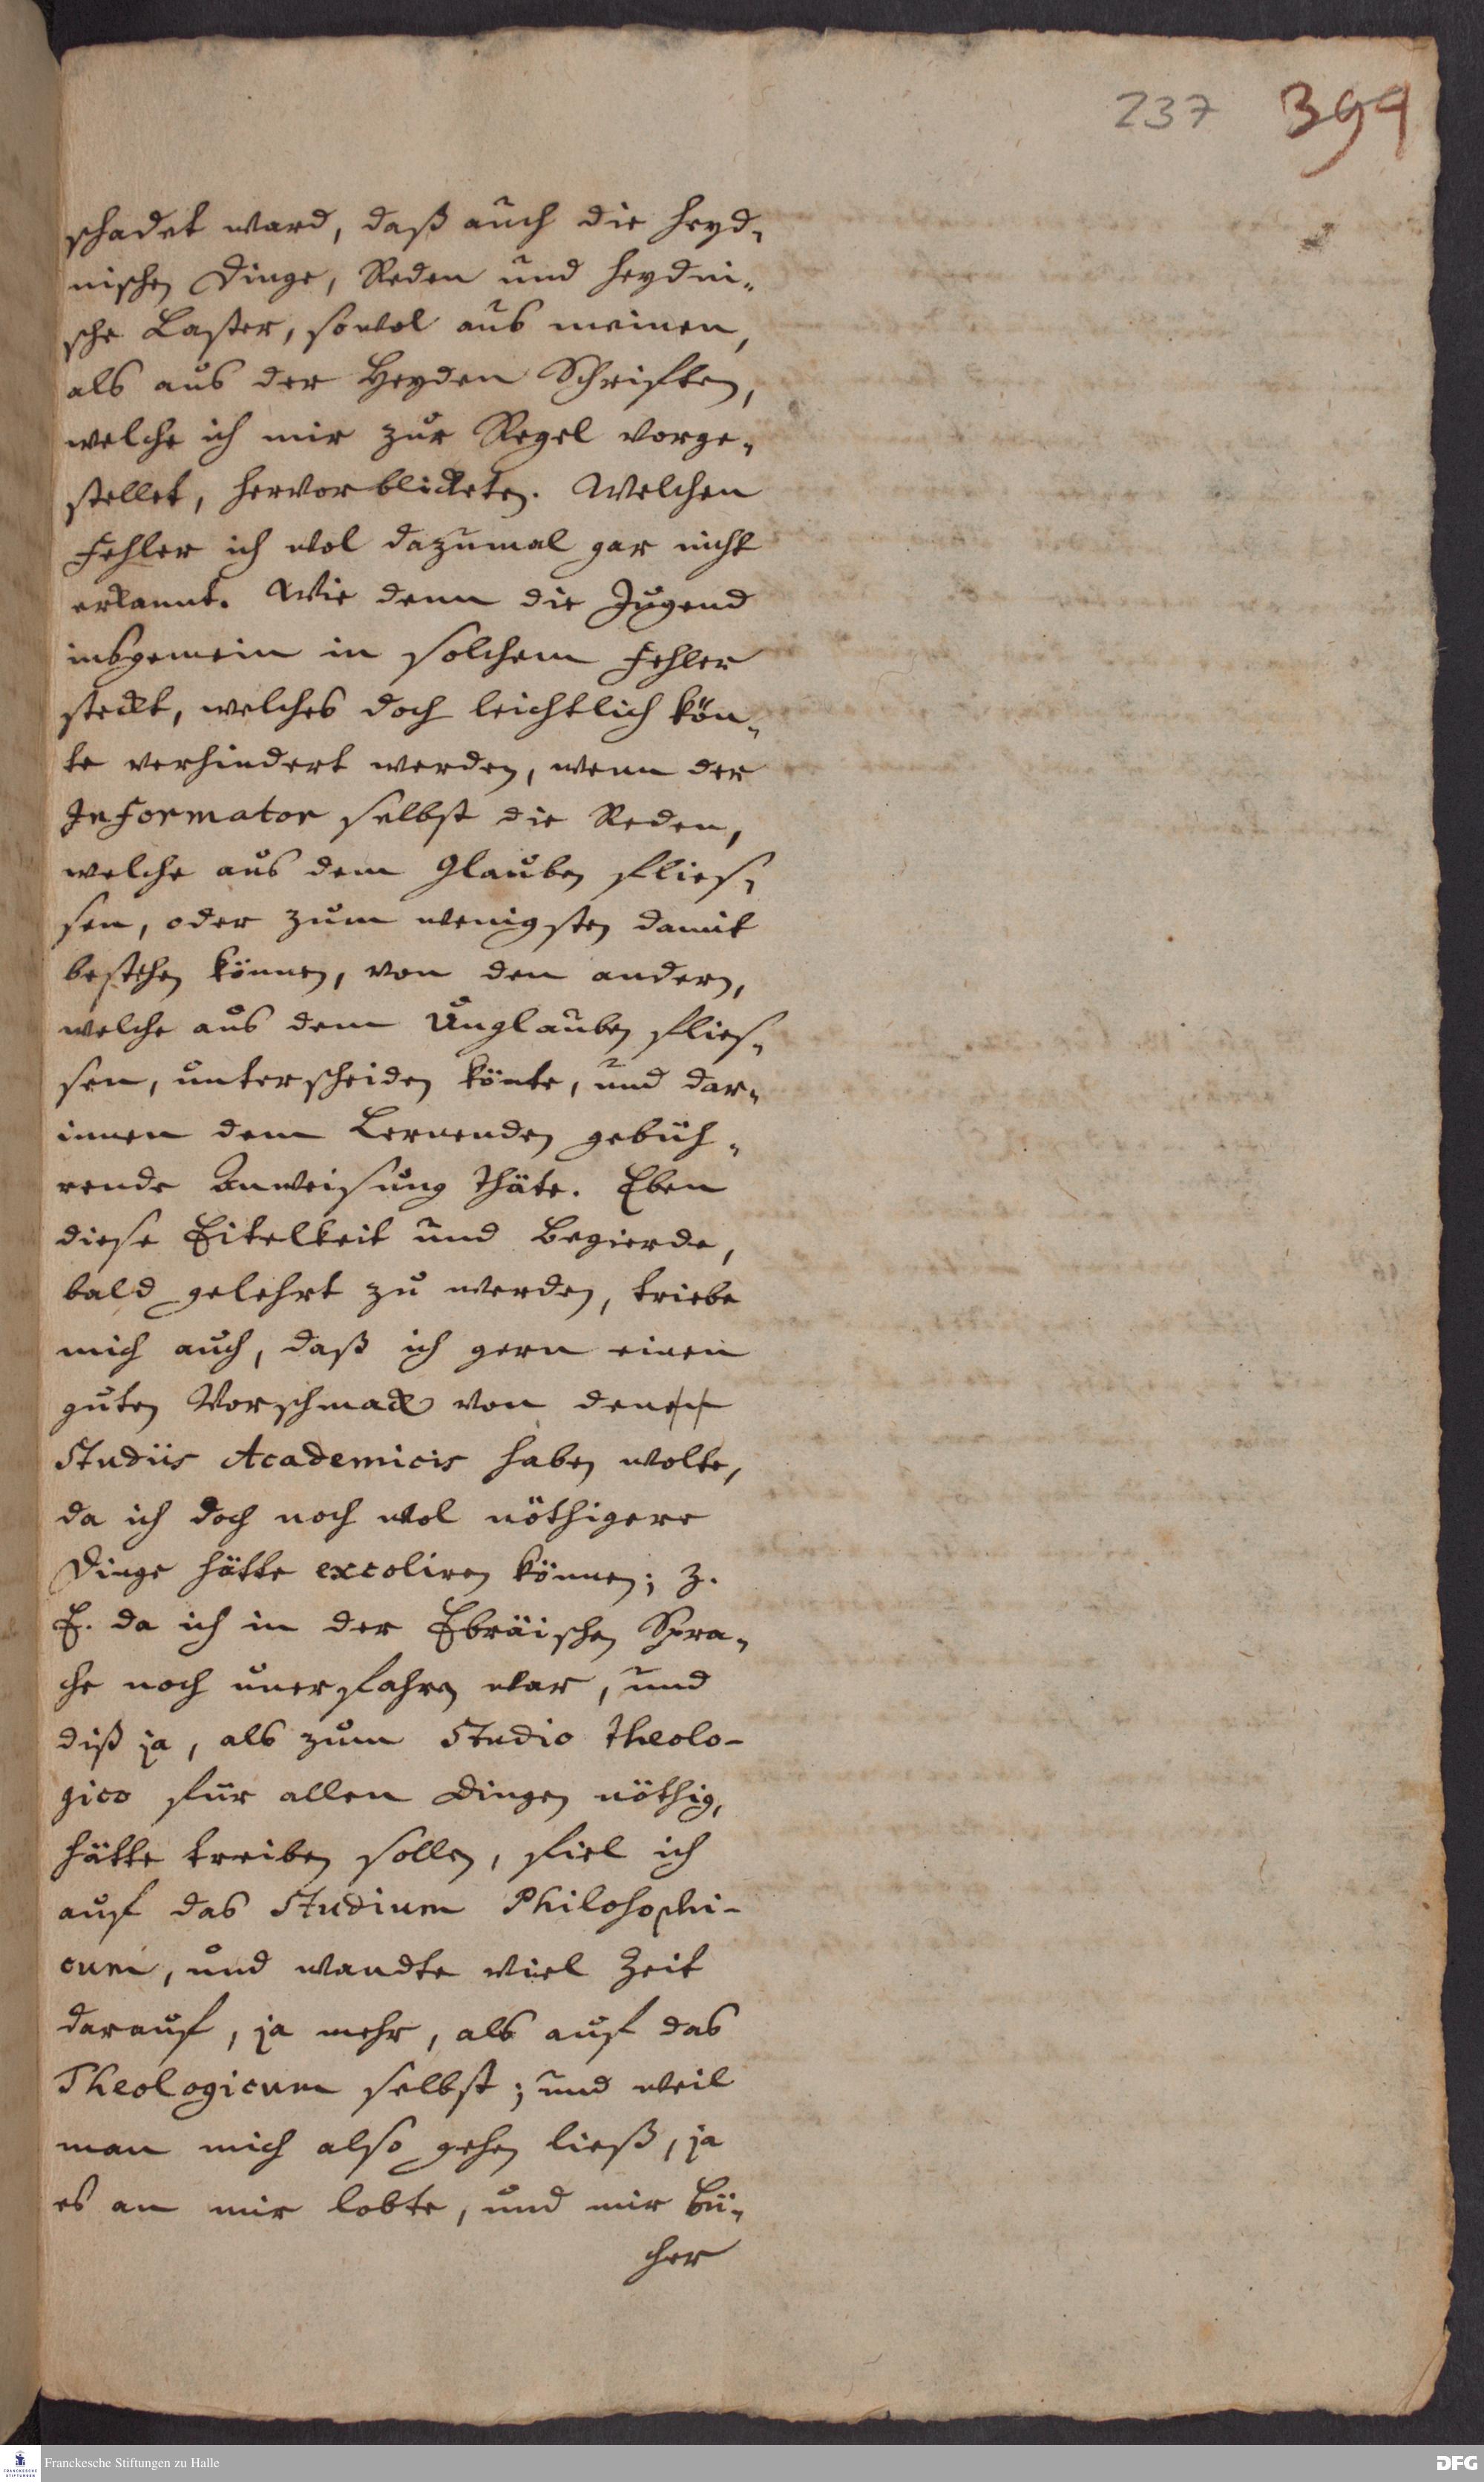 237 399
schadet ward, daß auch die heyd-
nischen Dinge, Reden und heydni-
sche Laster, sowol aus meinen,
als aus der Heyden Schriften,
welche ich mir zur Regel vorge-
stellet, hervorblicketen. Welchen
Fehler ich wol dazumal gar nicht
erkannt. Wie denn die Jugend
insgemein in solchem Fehler
steckt, welches doch leichtlich kön-
te verhindert werden, wenn der
Informator selbst die Reden,
welche aus dem Glauben flies-
sen, oder zum wenigsten damit
bestehen können, von den andern,
welche aus dem Unglauben flies-
sen, unterscheiden könte, und dar-
innen dem Lernenden gebüh-
rende Anweisung thäte. Eben
diese Eitelkeit und Begierde,
bald gelehrt zu werden, triebe
mich auch, daß ich gern einen
guten Vorschmack von denen
Studiis Academicis haben wolte,
da ich doch noch wol nöthigere
Dinge hätte excoliren können; z.
E. da ich in der Ebräischen Spra-
che noch unerfahren war, und
diß ja, als zum Studio theolo-
gico für allen Dingen nöthig,
hätte treiben sollen, fiel ich
auf das Studium Philosophi-
cum, und wandte viel Zeit
darauf, ja mehr, als auf das
Theologicum selbst; und weil
man mich also gehen ließ, ja
es an mir lobte, und mir Bü-
cher
Franckesche Stiftungen zu Halle
DFG